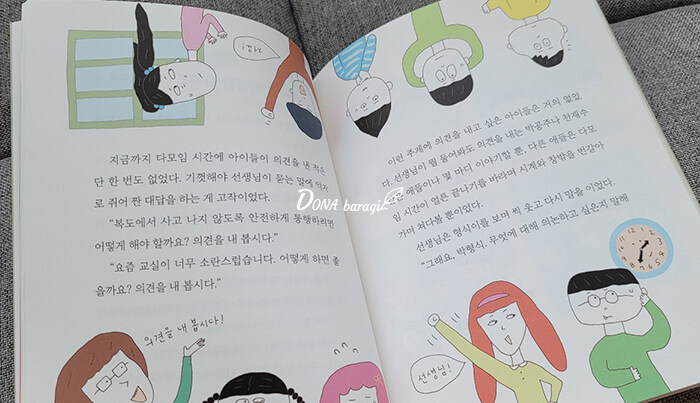 지금까지 다모임 시간에 아이들이 의견을 낸 적은
단 한 번도 없었다. 기껏해야 선생님이 묻는 말에 억지
로 쥐어 짠 대답을 하는 게 고작이었다.
“복도에서 사고 나지 않도록 안전하게 통행하려면
어떻게 해야 할까요? 의견을 내 봅시다.”
“요즘 교실이 너무 소란스럽습니다. 어떻게 하면 좋
을까요? 의견을 내 봅시다.”
의견을 내 봅시다!
이런 주제에 의견을 내고 싶은 아이들은 거의 없었
다. 선생님이 뭘 물어봐도 의견을 내는 박공주나 천재수
애들이나 몇 마디 이야기할 뿐, 다른 애들은 다모
임 시간이 얼른 끝나기를 바라며 시계와 창밖을 번갈아
가며 쳐다볼 뿐이었다.
선생님은 형식이를 보며 씩 웃고 다시 말을 이었다.
“그래요, 박형식. 무엇에 대해 의논하고 싶은지 말해
선생님!
DONA baragi